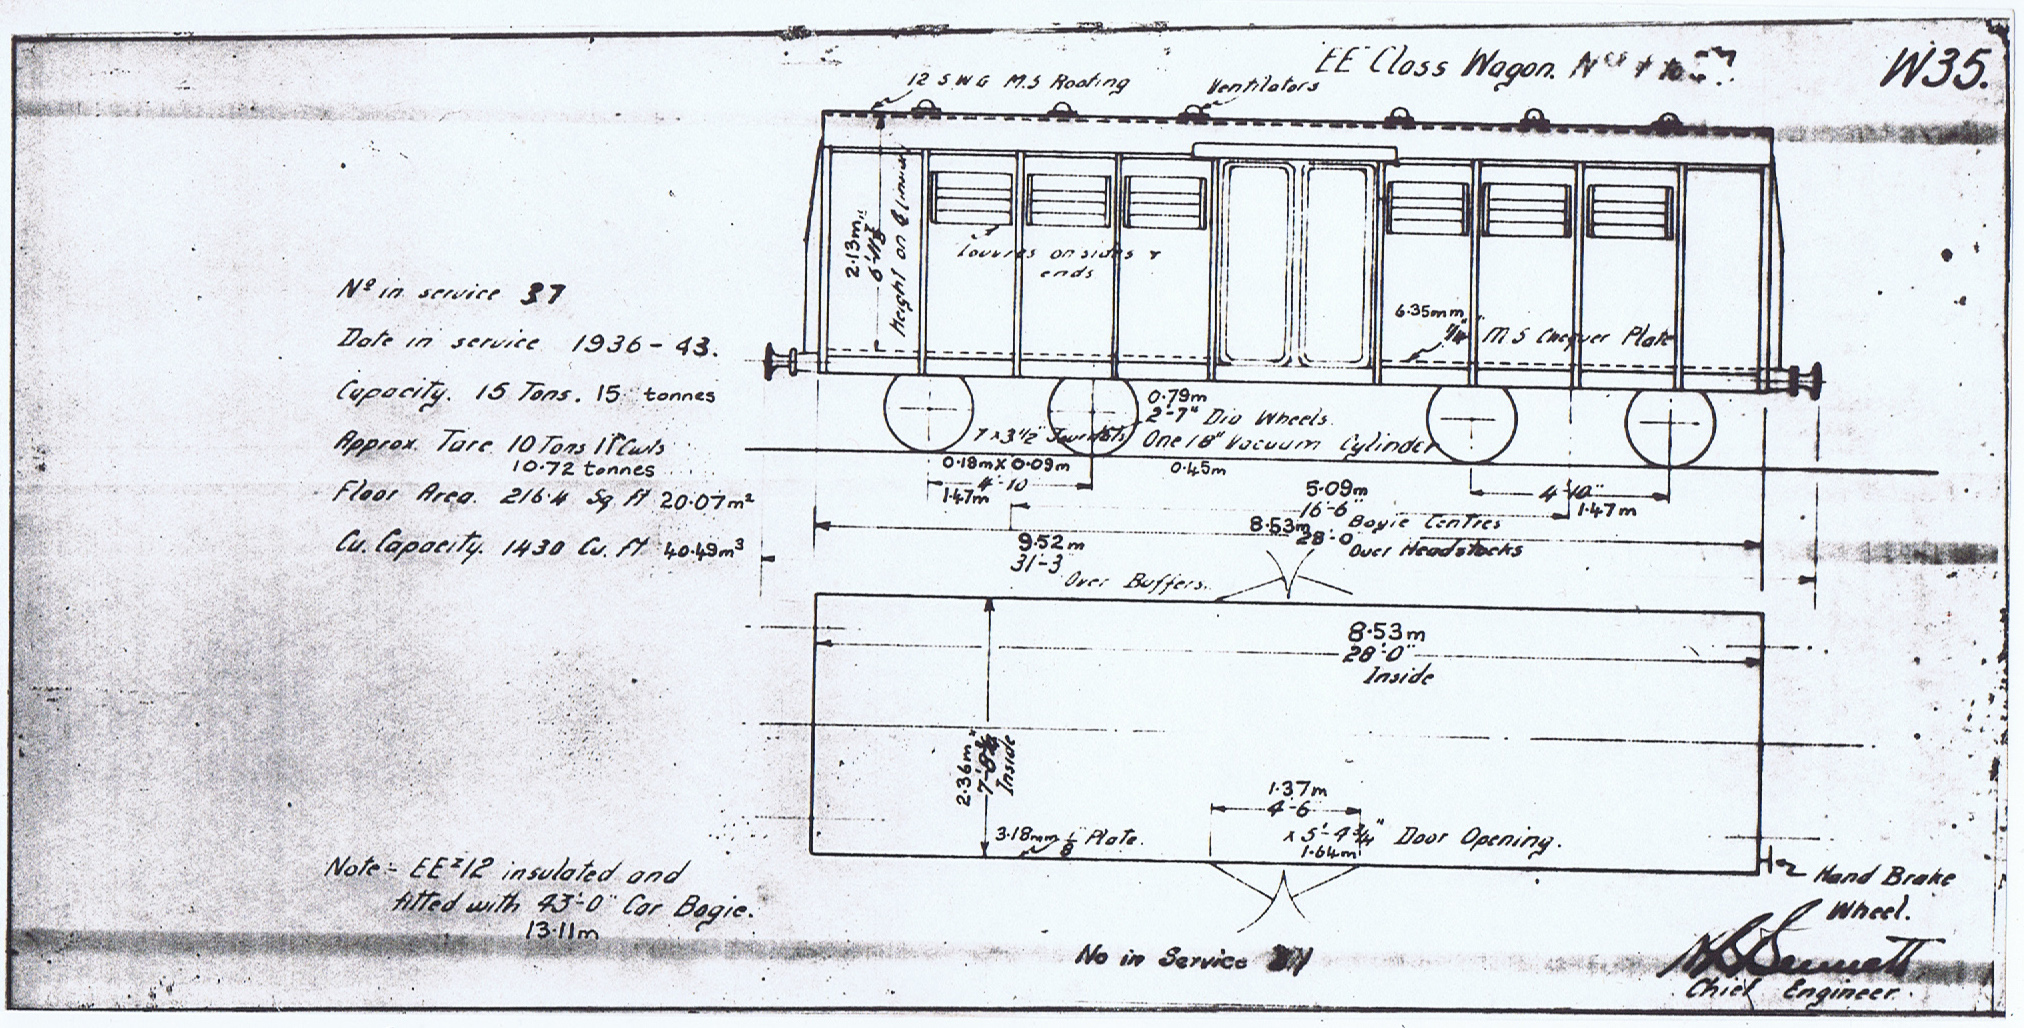 EE Class Wagon. Nos
W35.
12 S.W.G M.S Roofing
Ventilators
2.13m
Height on
Louvres on sides &
ends
6.35mm
1/4" M S Chequer Plate
No in service 37
Date in service 1936-43.
Capacity. 15 Tons. 15 tonnes
Approx. Tare 10 Tons 11 Cwts
10.72 tonnes
Floor Area. 216.4 Sq Ft 20.07m²
Cu. Capacity. 1430 Cu. Ft 40.49m³
0.79m
2'-7" Dia Wheels.
7 x 3½" Journals One 18" Vacuum Cylinder
0.18m x 0.09m
0.45m
4'-10
1.47m
5.09m
16'-6"
Bogie Centres
4'-10"
1.47m
8.53m
28'-0"
Over Headstocks
9.52m
31'-3
Over Buffers.
8.53m
28'-0"
Inside
2.36m
7'-8¾"
Inside
1.37m
4'-6"
x 5'-4¾" Door Opening.
1.64m
3.18mm 1/8 Plate.
Hand Brake
Wheel.
Note:- EE 12 insulated and
fitted with 43'-0" Car Bogie.
13.11m
No in Service
Chief Engineer.